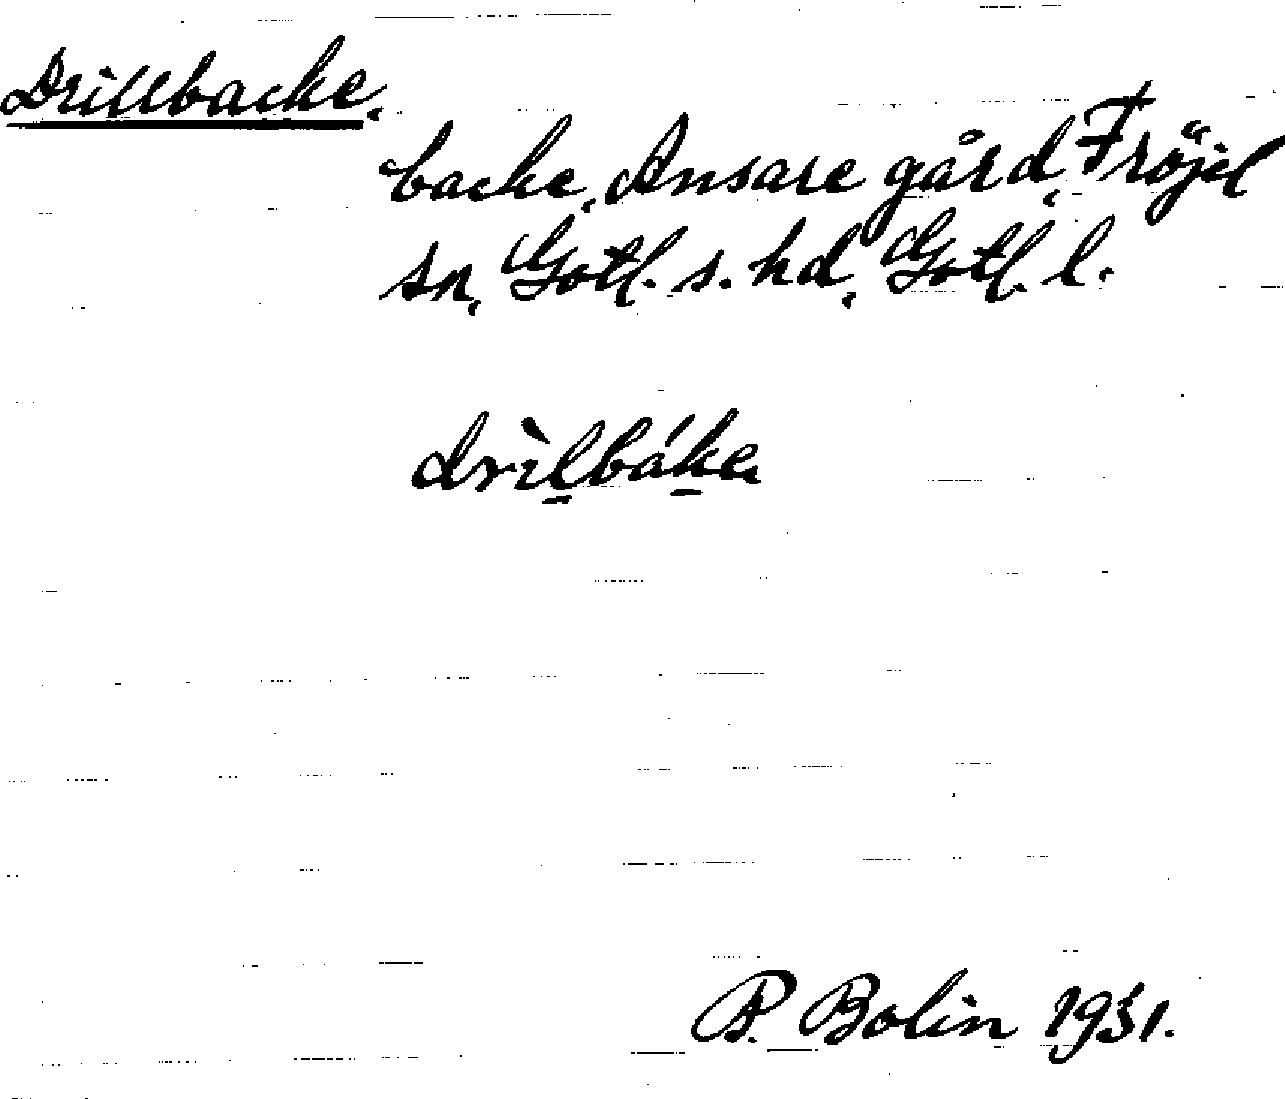 Drillbacke.
backe, Ansare gård, Fröjel
sn, Gotl. s. hd, Gotl. l.
drìlbáke
P. Bolin 1931.